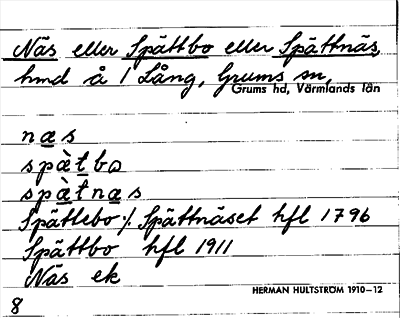 Näs eller Spättbo eller Spättnäs,
hmd å 1 Lång, Grums sn,
Grums hd, Värmlands län
næs
spætbo
spætnæs
Spättebo ./. Spättnäset hfl 1796
Spättbo hfl 1911
Näs ek
HERMAN HULTSTRÖM 1910–12
8